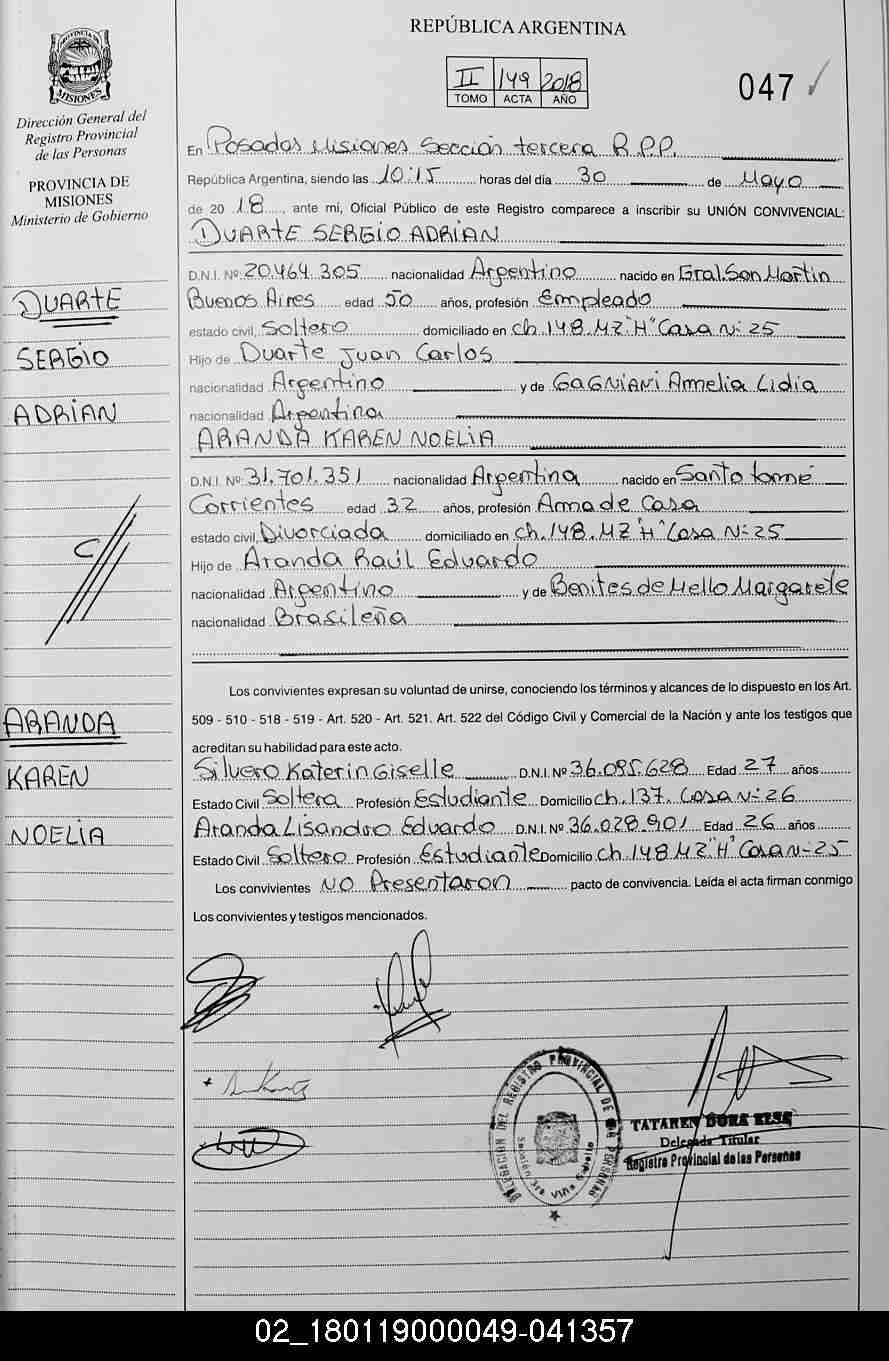 REPÚBLICA ARGENTINA
PROVINCIA DE
MISIONES
Dirección General del
Registro Provincial
de las Personas
PROVINCIA DE
MISIONES
Ministerio de Gobierno
II 149 2018
TOMO ACTA AÑO
047
En Posadas Misiones Sección tercera R.P.P.
República Argentina, siendo las 10:15 horas del día 30 de Mayo
de 20 18, ante mi, Oficial Público de este Registro comparece a inscribir su UNIÓN CONVIVENCIAL:
DUARTE SERGIO ADRIAN
D.N.I. Nº 20.464.305 nacionalidad Argentino nacido en Gral. San Martin
Buenos Aires edad 50 años, profesión Empleado
estado civil, Soltero domiciliado en ch. 148. MZ "H" Casa Nº 25
Hijo de Duarte Juan Carlos
nacionalidad Argentino y de GAGNIANI Amelia Lidia
nacionalidad Argentina
ARANDA KAREN NOELIA
D.N.I. Nº 31.701.351 nacionalidad Argentina nacido en Santo tomé
Corrientes edad 32 años, profesión Ama de Casa
estado civil, Divorciada domiciliado en ch. 148. MZ "H" Casa Nº 25
Hijo de Aranda Raúl Eduardo
nacionalidad Argentino y de Benites de Mello Margarete
nacionalidad Brasileña
DUARTE
SERGIO
ADRIAN
ARANDA
KAREN
NOELIA
Los convivientes expresan su voluntad de unirse, conociendo los términos y alcances de lo dispuesto en los Art.
509 - 510 - 518 - 519 - Art. 520 - Art. 521. Art. 522 del Código Civil y Comercial de la Nación y ante los testigos que
acreditan su habilidad para este acto.
Silvero Katerin Giselle D.N.I. Nº 36.095.628 Edad 27 años
Estado Civil Soltera Profesión Estudiante Domicilio ch. 137. Casa Nº 26
Aranda Lisandro Eduardo D.N.I. Nº 36.028.901 Edad 26 años
Estado Civil Soltero Profesión Estudiante Domicilio ch. 148 MZ "H" Casa Nº 25
Los convivientes NO Presentaron pacto de convivencia. Leída el acta firman conmigo
Los convivientes y testigos mencionados.
DELEGACION DEL REGISTRO PROVINCIAL DE LAS PERSONAS
TATAREN DORA ELSA
Delegada Titular
Registro Provincial de las Personas
02_180119000049-041357